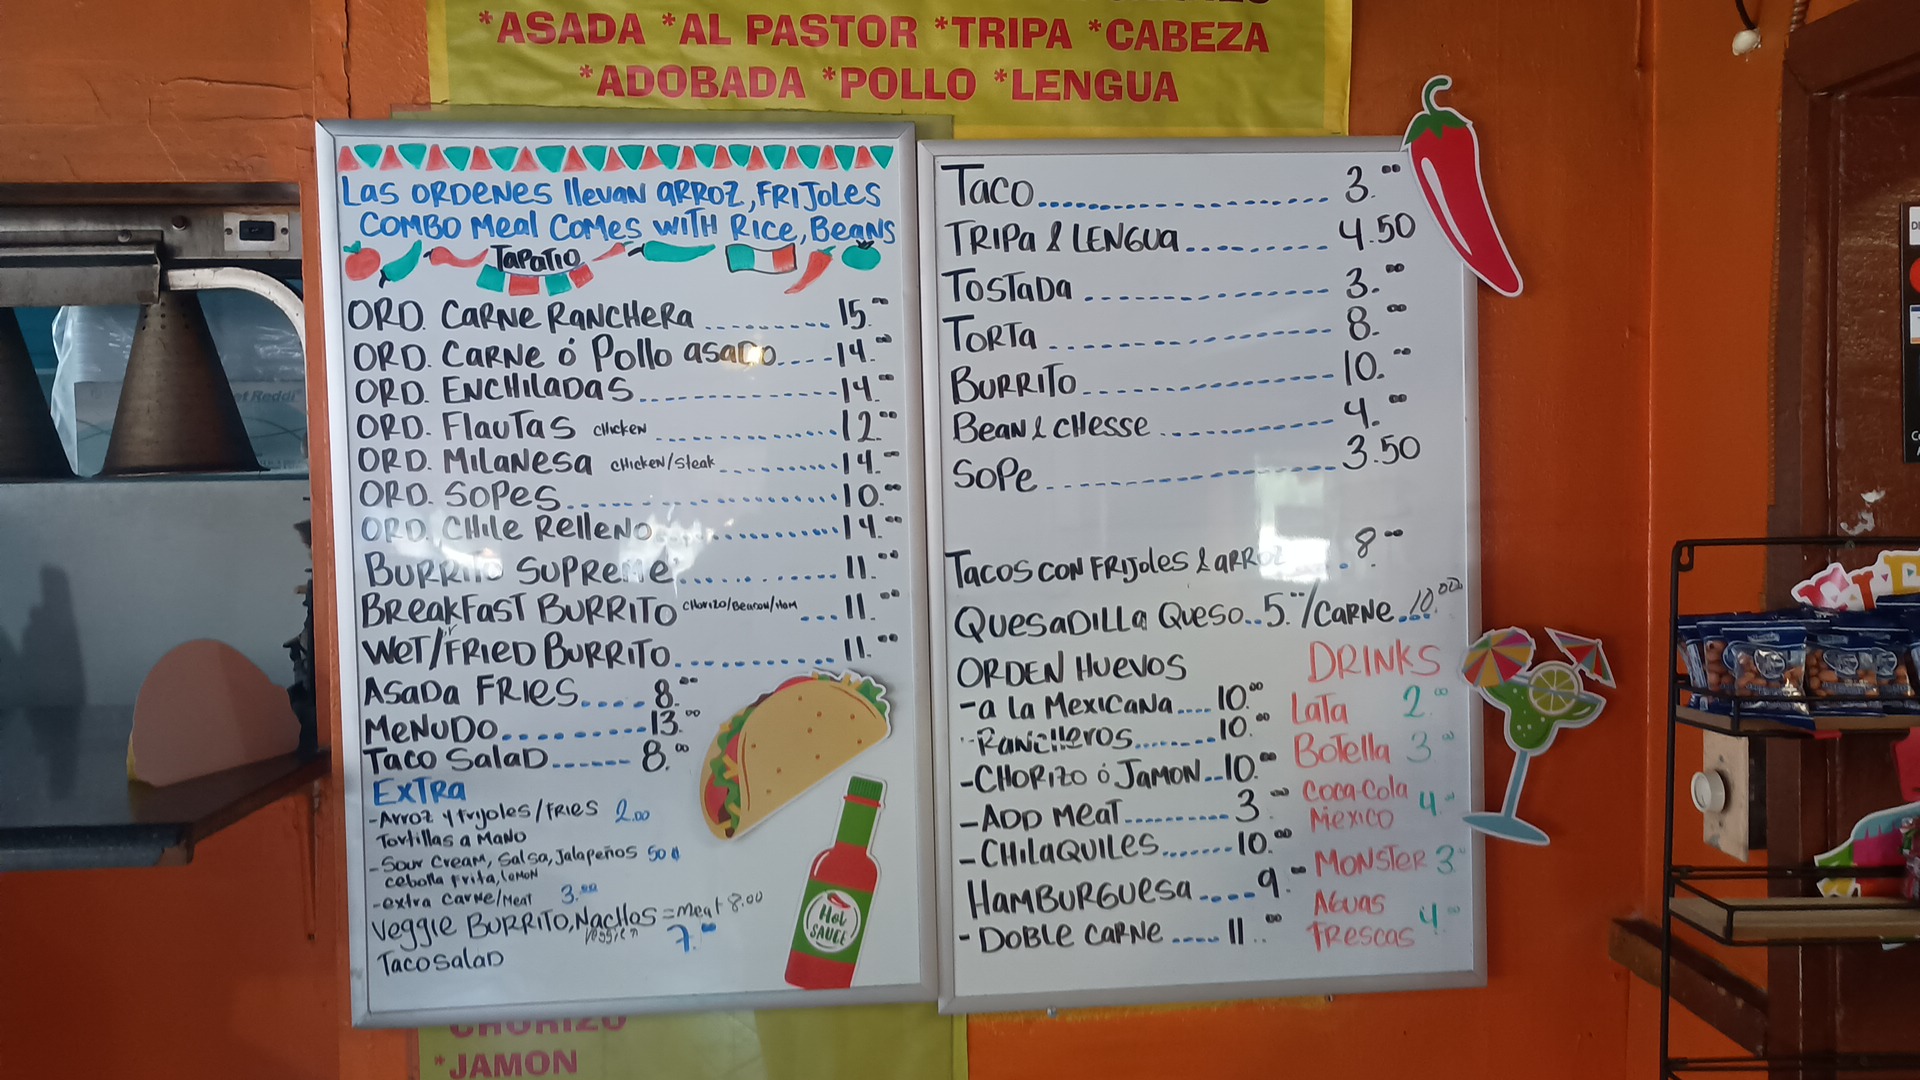 *ASADA *AL PASTOR *TRIPA *CABEZA
*ADOBADA *POLLO *LENGUA
LAS ORDENES llevan ARROZ, FRIJOLES
COMBO Meal COMES WITH RICE, BEANS
TAPATIO
ORD. CARNE RANCHERA ......... 15.00
ORD. CARNE ó Pollo asado.... 14.00
ORD. ENCHILADAS............. 14.00
ORD. FLAUTAS CHICKEN ............. 12.00
ORD. MILANESA CHICKEN/Steak ......... 14.00
ORD. SOPES.................. 10.00
ORD. CHILE RELLENO............ 14.00
BURRITO SUPREME............ 11.00
BREAKFAST BURRITO CHORIZO/Beacon/Ham ... 11.00
WET/FRIED BURRITO.......... 11.00
ASADA FRIES.... 8.00
MENUDO.......... 13.00
TACO SALAD...... 8.00
EXTRA
-Arroz y frijoles/FRIES 2.00
Tortillas a Mano
-Sour Cream, Salsa, Jalapeños 50¢
cebolla frita, lemon
-extra carne/Meat 3.00
Veggie BURRITO, NACHOS = meat 8.00
veggie 7.00
TACO SALAD
Hot
SAUCE
TACO...................... 3.00
TRIPA & LENGUA.......... 4.50
TOSTADA ............... 3.00
TORTA .................. 8.00
BURRITO................ 10.00
BEAN & CHESSE ........... 4.00
SOPE .................. 3.50
TACOS CON FRIJOLES & ARROZ . 8.00
QUESADILLA QUESO.. 5.00/CARNE... 10.00
ORDEN HUEVOS
-a la MEXICANA.... 10.00
-RANCHEROS........ 10.00
-CHORIZO ó JAMON.. 10.00
-ADD MEAT.......... 3.00
-CHILAQUILES....... 10.00
HAMBURGUESA .... 9.00
- DOBLE CARNE .... 11.00
DRINKS
LATA 2.00
BOTELLA 3.00
COCA-COLA
MEXICO 4.00
MONSTER 3.00
AGUAS
FRESCAS 4.00
CHORIZO
*JAMON